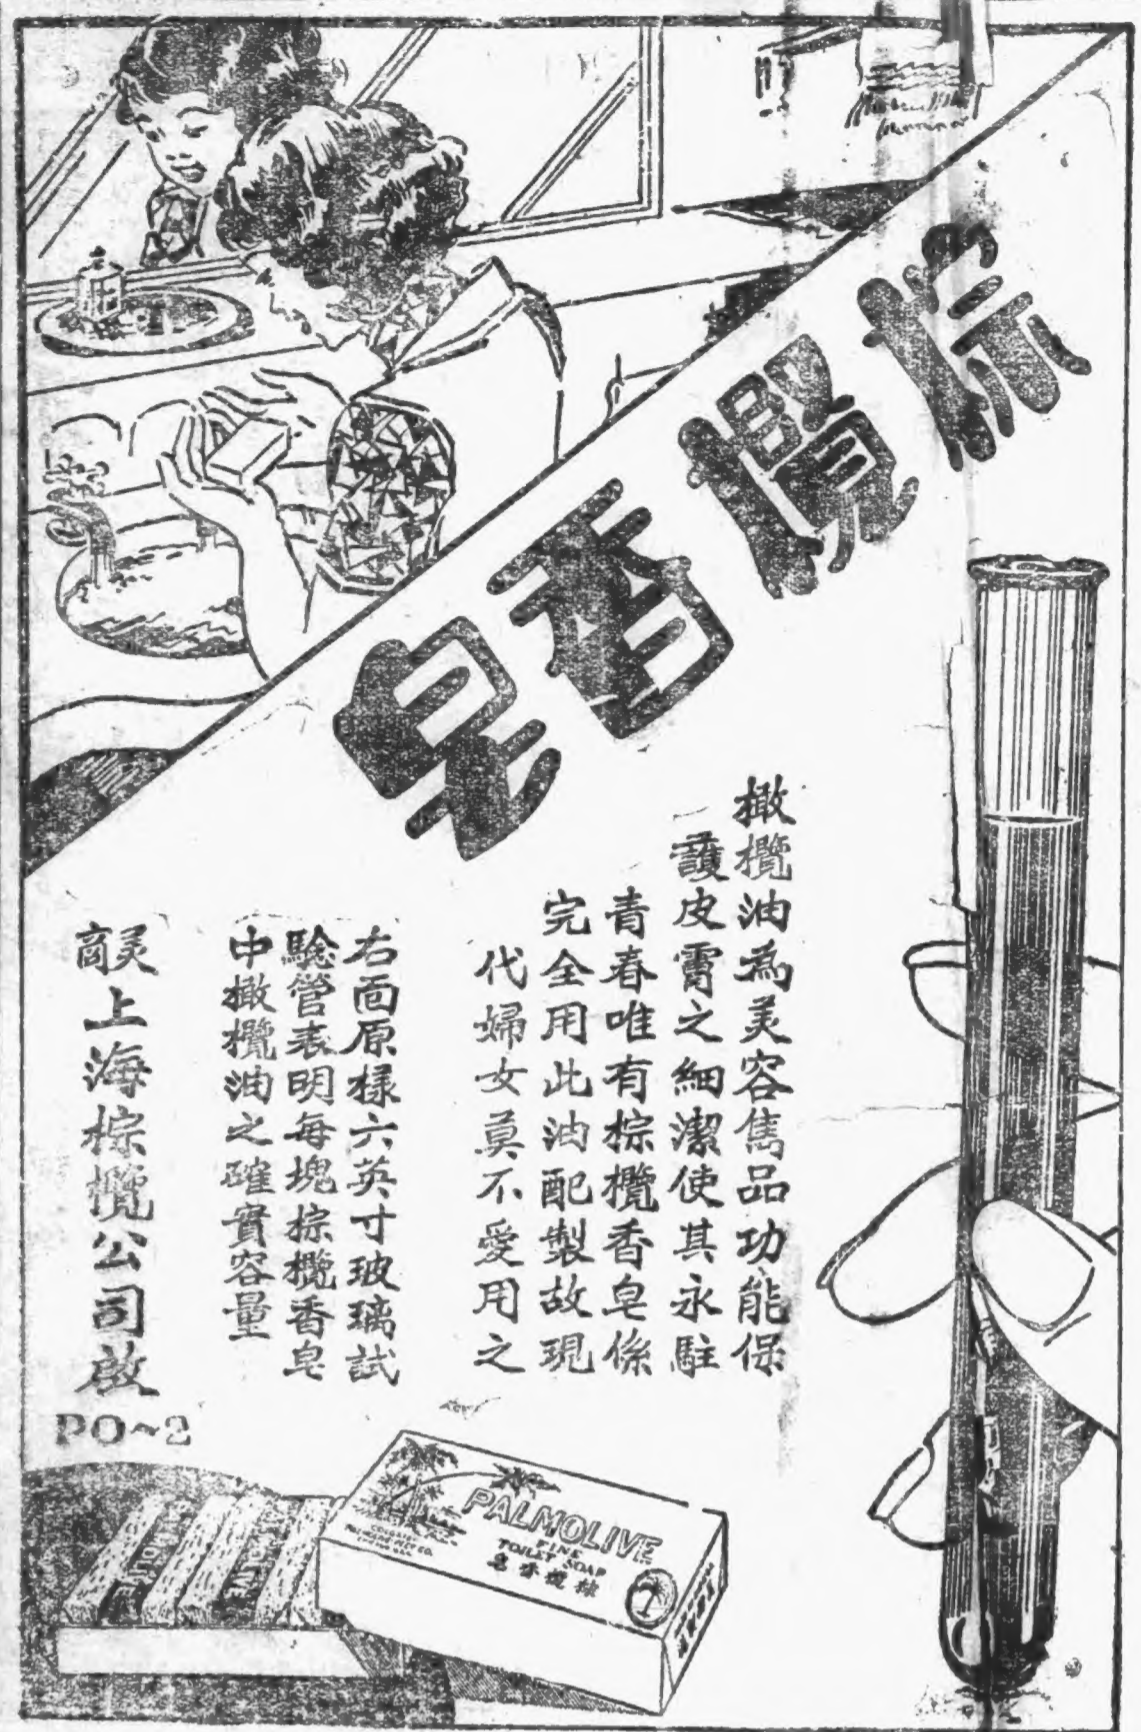 棕欖香皂
橄欖油為美容雋品功能保
護皮膚之細潔使其永駐
青春唯有棕欖香皂係
完全用此油配製故現
代婦女莫不愛用之
右面原樣六英寸玻璃試
驗管表明每塊棕欖香皂
中橄欖油之確實容量
美商上海棕欖公司啟
PO~2
PALMOLIVE
FINE
TOILET SOAP
棕欖香皂
PALMOLIVE
PALMOLIVE